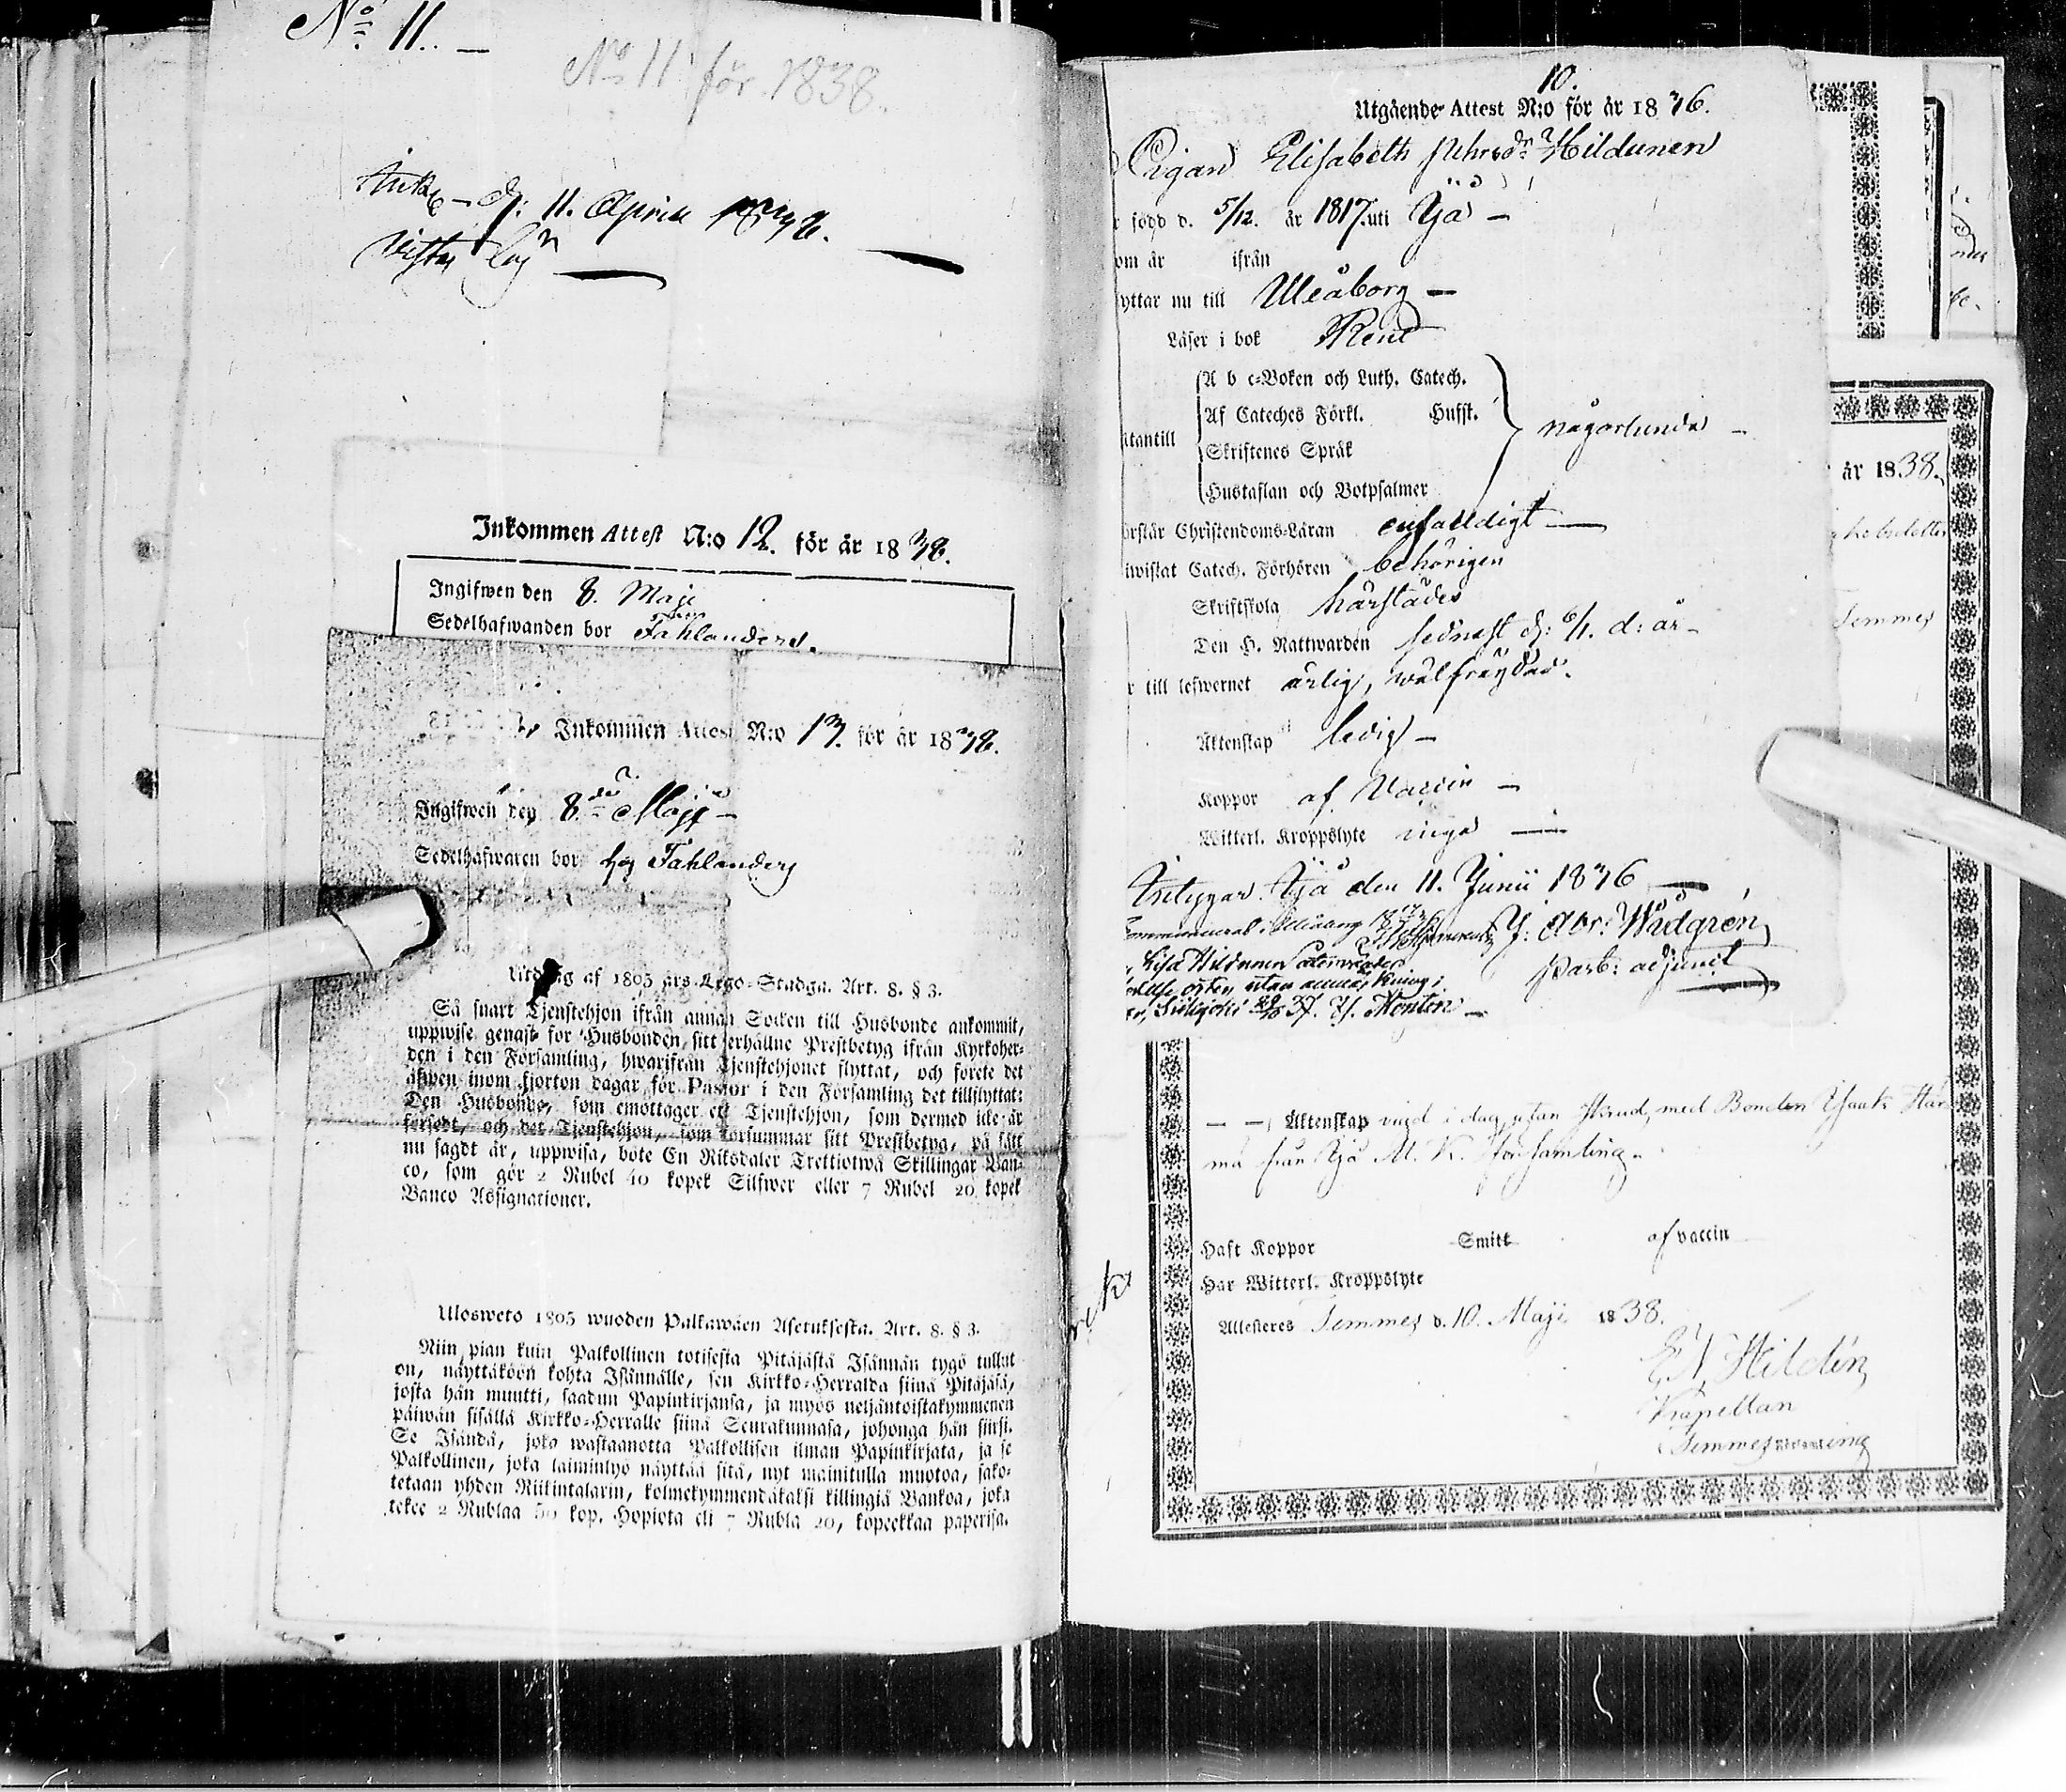 No 11. —
No 11 för 1838.
d: 11. April 1838. —
Inkommen Attest N:o 12. för år 1838.
Ingifwen den 8. Maji
Sedelhafwanden bor Fahlanders.
Inkommen Attest N:o 13. för år 1838.
Ingifwen den 8de Maji —
Sedelhafwaren bor hos Fahlanders
Utdrag af 1805 års Lego-Stadga. Art. 8. § 3.
Så snart Tjenstehjon ifrån annan Socken till Husbonde ankommit,
uppwise genast for Husbonden sitt erhållne Prestbetyg ifrån Kyrkoher-
den i den Församling, hwarifrån Tjenstehjonet flyttat, och förete det
äfwen inom fjorton dagar för Pastor i den Församling det tillflyttat:
Den Husbonde, som emottager ett Tjenstehjon, som dermed icke är
försedt, och det Tjenstehjon, som försummar sitt Prestbetyg, på sätt
nu sagdt är, uppwisa, böte En Riksdaler Trettiotwå Skillingar Ban-
co, som gör 2 Rubel 40 kopek Silfwer eller 7 Rubel 20 kopek
Banco Assignationer.
Ulosweto 1805 wuoden Palkawäen Asetuksesta. Art. 8. § 3.
Niin pian kuin Palkollinen totisesta Pitäjästä Isännän tygö tullut
on, näyttäköön kohta Isännälle, sen Kirkko-Herralda siinä Pitäjäsä,
josta hän muutti, saadun Papinkirjansa, ja myös neljäntoistakymmenen
päiwän sisällä Kirkko-Herralle siinä Seurakunnasa, johonga hän siirsi.
Se Isändä, joka wastaanotta Palkollisen ilman Papinkirjata, ja se
Palkollinen, joka laiminlyö näyttää sitä, nyt mainitulla muotoa, sako-
tetaan yhden Riikintalarin, kolmekymmendäkaksi killingiä Bankoa, joka
tekee 2 Rublaa 50 kop. Hopiota eli 7 Rubla 20, kopeekkaa paperisa.
10.
Utgående Attest N:o för år 1836.
Pigan Elisabeth Pehrsdr Hildunen
r född d. 5/12. år 1817. uti Ijå —
om år ifrån
yttar nu till Uleåborg —
Läser i bok Rent
A b c-Boken och Luth. Catech.
Af Cateches Förkl. Hufst.
tantill
någorlunda —
Skriftenes Språk
Hustaflan och Botpsalmer
örstår Christendoms-Läran enfaldigt —
iwistat Catech. Förhören behörigen
Skriftskola härstädes
Den H. Nattwarden sednast d: 6/1. d: år —
r till lefwernet ärlig, wälfrejdad.
Äktenskap ledig —
Koppor af Vaccin —
Witterl. Kroppslyte inga —
Ijå den 11. Junii 1836 —
J. Abr: Wädgrén
Past: adjunct
Lisa Hildunen
orten utan anmärkning;
37. J. Montin —
år 1838.
Temmes
— —, Äktenskap vigd i dag, utan med Bonden Isaak Här
mä från Ijå M. K. församling.
Haft Koppor Smitt af vaccin
Har Witterl. Kroppslyte
Attesteres Temmes d. 10. Maji 1838.
Hildén
Kapellan
Temmes